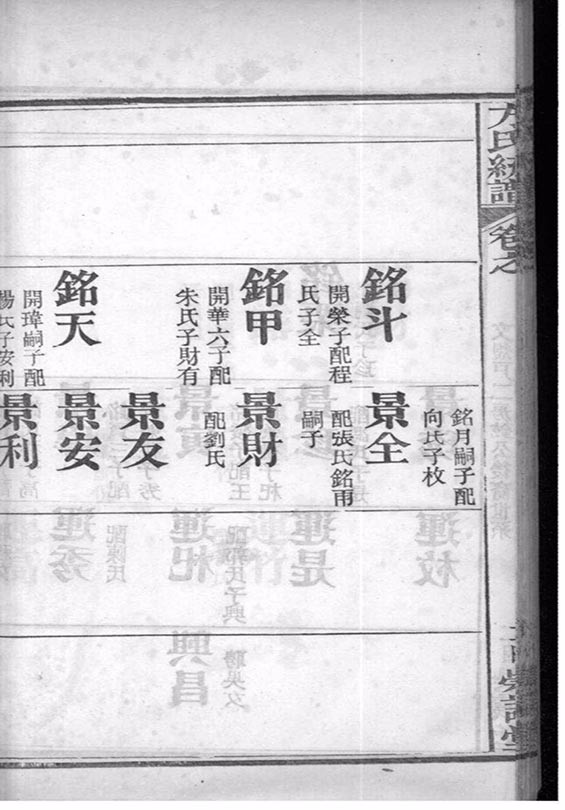 方氏統譜
卷之
銘斗
開榮子配程
氏子全
銘甲
開華六子配
朱氏子財有
銘天
開瑋嗣子配
楊氏子安利
銘月嗣子配
向氏子枚
景全
配張氏銘
嗣子
景財
配劉氏
景友
景安
景利